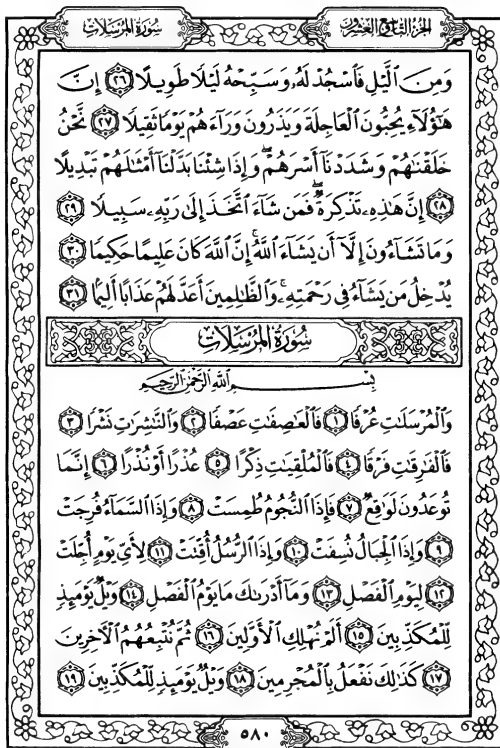 الجزء التاسع والعشرون
سورة المرسلات
وَمِنَ ٱلَّيۡلِ فَٱسۡجُدۡ لَهُۥ وَسَبِّحۡهُ لَيۡلٗا طَوِيلًا ٢٦ إِنَّ
هَٰٓؤُلَآءِ يُحِبُّونَ ٱلۡعَاجِلَةَ وَيَذَرُونَ وَرَآءَهُمۡ يَوۡمٗا ثَقِيلٗا ٢٧ نَّحۡنُ
خَلَقۡنَٰهُمۡ وَشَدَدۡنَآ أَسۡرَهُمۡۖ وَإِذَا شِئۡنَا بَدَّلۡنَآ أَمۡثَٰلَهُمۡ تَبۡدِيلًا
٢٨ إِنَّ هَٰذِهِۦ تَذۡكِرَةٞۖ فَمَن شَآءَ ٱتَّخَذَ إِلَىٰ رَبِّهِۦ سَبِيلٗا ٢٩
وَمَا تَشَآءُونَ إِلَّآ أَن يَشَآءَ ٱللَّهُۚ إِنَّ ٱللَّهَ كَانَ عَلِيمًا حَكِيمٗا ٣٠
يُدۡخِلُ مَن يَشَآءُ فِي رَحۡمَتِهِۦۚ وَٱلظَّٰلِمِينَ أَعَدَّ لَهُمۡ عَذَابًا أَلِيمَۢا ٣١
سُورَةُ المُرْسَلَات
بِسۡمِ ٱللَّهِ ٱلرَّحۡمَٰنِ ٱلرَّحِيمِ
وَٱلۡمُرۡسَلَٰتِ عُرۡفٗا ١ فَٱلۡعَٰصِفَٰتِ عَصۡفٗا ٢ وَٱلنَّٰشِرَٰتِ نَشۡرٗا ٣
فَٱلۡفَٰرِقَٰتِ فَرۡقٗا ٤ فَٱلۡمُلۡقِيَٰتِ ذِكۡرًا ٥ عُذۡرًا أَوۡ نُذۡرًا ٦ إِنَّمَا
تُوعَدُونَ لَوَٰقِعٞ ٧ فَإِذَا ٱلنُّجُومُ طُمِسَتۡ ٨ وَإِذَا ٱلسَّمَآءُ فُرِجَتۡ
٩ وَإِذَا ٱلۡجِبَالُ نُسِفَتۡ ١٠ وَإِذَا ٱلرُّسُلُ أُقِّتَتۡ ١١ لِأَيِّ يَوۡمٍ أُجِّلَتۡ
١٢ لِيَوۡمِ ٱلۡفَصۡلِ ١٣ وَمَآ أَدۡرَىٰكَ مَا يَوۡمُ ٱلۡفَصۡلِ ١٤ وَيۡلٞ يَوۡمَئِذٖ
لِّلۡمُكَذِّبِينَ ١٥ أَلَمۡ نُهۡلِكِ ٱلۡأَوَّلِينَ ١٦ ثُمَّ نُتۡبِعُهُمُ ٱلۡأٓخِرِينَ
١٧ كَذَٰلِكَ نَفۡعَلُ بِٱلۡمُجۡرِمِينَ ١٨ وَيۡلٞ يَوۡمَئِذٖ لِّلۡمُكَذِّبِينَ ١٩
٥٨٠